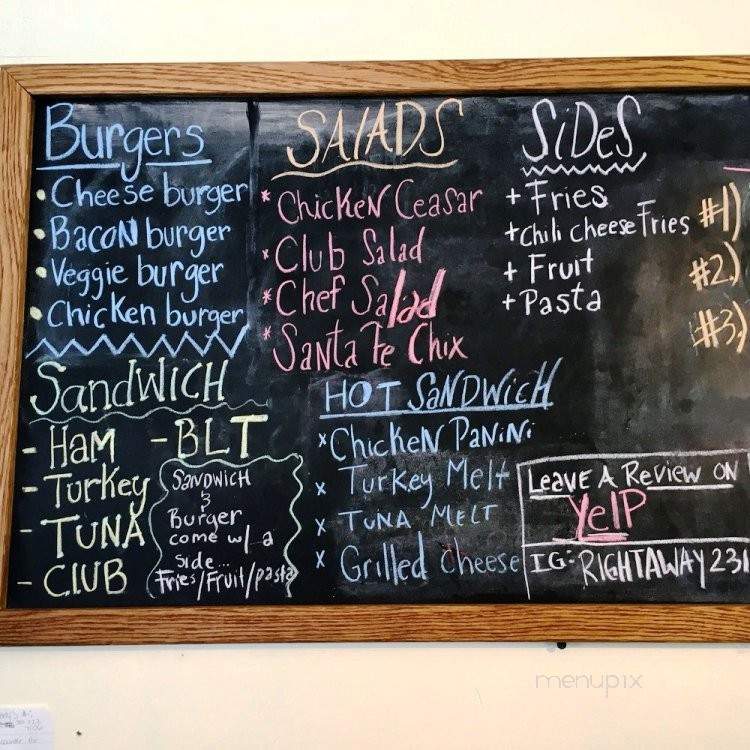 Burgers
Cheese burger
Bacon burger
Veggie burger
Chicken burger
SAlADS
* Chicken Ceasar
* Club Salad
* Chef Salad
* Santa Fe Chix
SiDeS
+ Fries
+ Chili cheese Fries
+ Fruit
+ Pasta
#1)
#2.)
#3)
SandWICH
- Ham
- BLT
- Turkey
- TUNA
- CLUB
SANDWICH
&
Burger
come w/ a
Side...
Fries/Fruit/pasta
HOT SANDWicH
x Chicken Panini
x Turkey Melt
x Tuna Melt
x Grilled Cheese
Leave A Review on
YelP
IG: RIGHTAWAY231
menupix